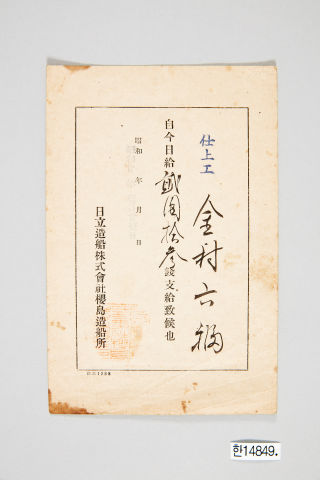 仕上工
金村六福
自今日給貳圓拾參錢支給致候也
昭和 年 月 日
日立造船株式會社櫻島造船所
한14849.